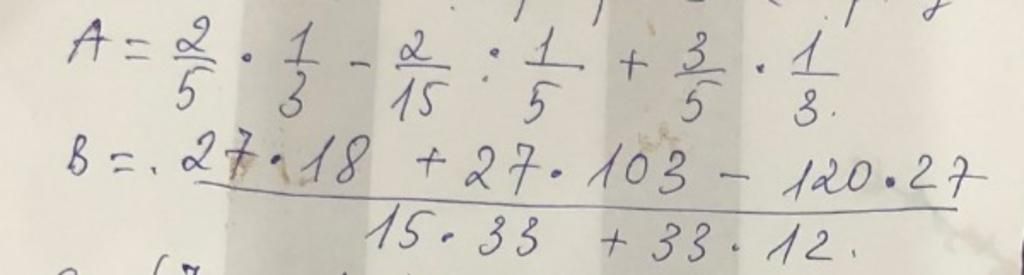 A = 2/5 · 1/3 - 2/15 : 1/5 + 3/5 · 1/3.
B = . 27 · 18 + 27 · 103 - 120 · 27 / 15 · 33 + 33 · 12.